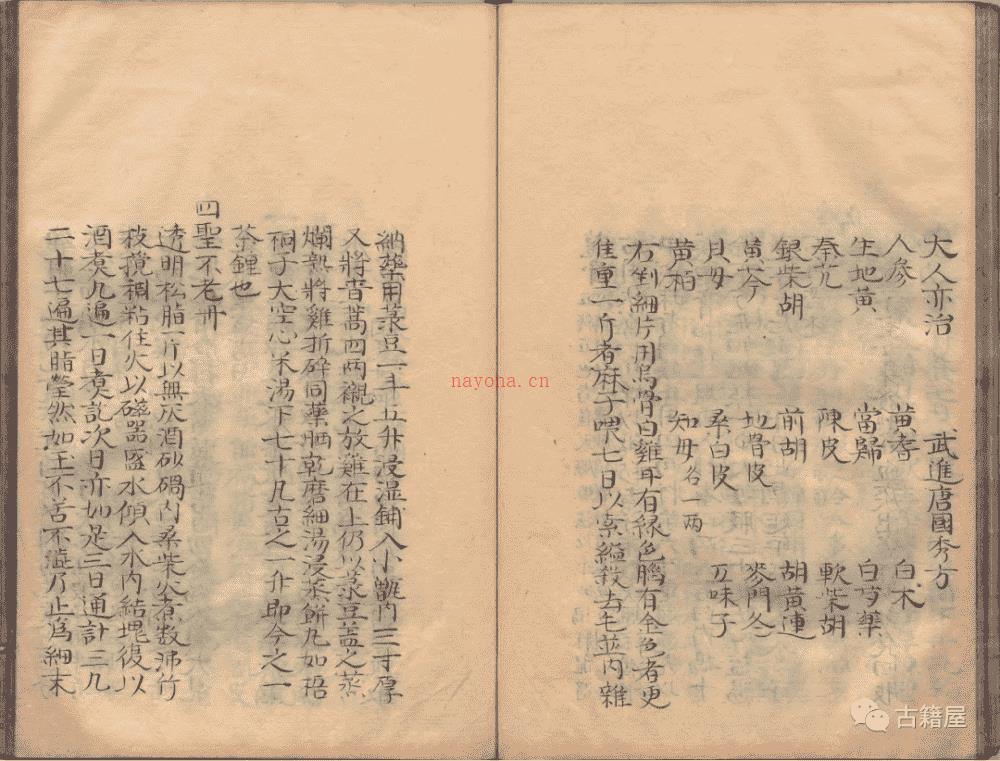 大人亦治 武進唐國秀方
人參 黄耆 白术
生地黄 當歸 白芍藥
秦艽 陳皮 軟柴胡
銀柴胡 前胡 胡黄連
黄芩 地骨皮 麥門冬
貝母 桑白皮 五味子
黄柏 知母各一兩
右剉細片用烏骨白雞耳有緑色腦有金色者更
佳重一斤者麻子喂七日以索縊殺去毛並内雜
納藥用菉豆一斗五升浸湿鋪入小甑内三寸厚
又將青蒿四两襯之放雞在上仍以菉豆蓋之蒸
爛熟將雞折碎同藥晒乾磨細湯浸蒸餅丸如梧
桐子大空心米湯下七十凡古之一升即今之一
茶鍾也
四聖不老丹
透明松脂一斤以無灰酒砂鍋内桑柴火煮数沸竹
枝攪稠粘住火以磁器盛水傾入水内結塊復以
酒煮九遍一日煮訖次日亦如是三日通計三九
二十七遍其脂瑩然如玉不苦不澁乃止為細末
nayona.cn
古籍屋